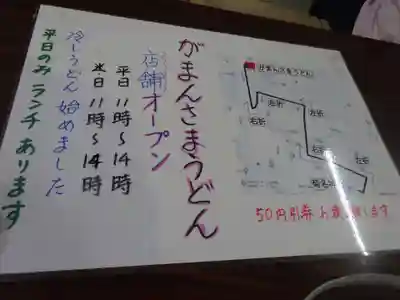 がまんさまうどん
店舗オープン
平日 11時~14時
11時~14時
冷しうどん 始めました
平日のみ ランチ あります
がまんさまうどん
右折
左折
右折
左折
50円引券